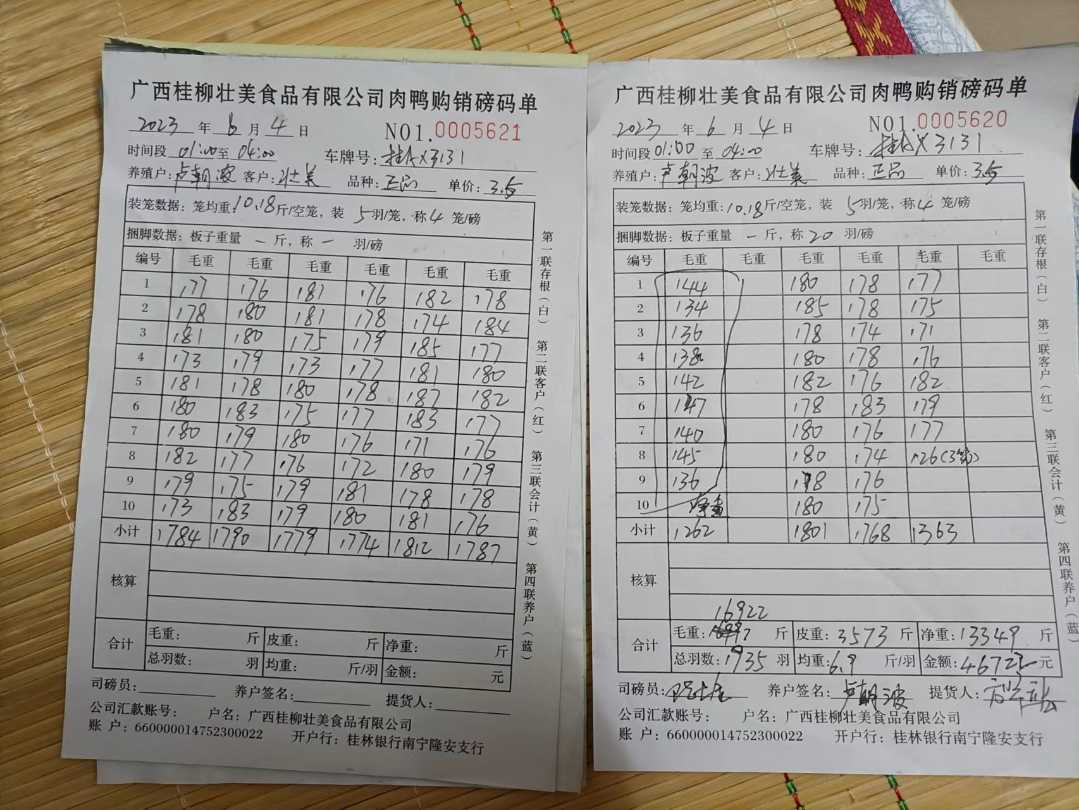 广西桂柳壮美食品有限公司肉鸭购销磅码单
2023 年 6 月 4 日 NO1.0005621
时间段 01:00 至 04:00 车牌号: 桂AX3131
养殖户: 卢朝波 客户: 壮美 品种: 正品 单价: 3.5
装笼数据: 笼均重: 10.18 斤/空笼, 装 5 羽/笼, 称 4 笼/磅
捆脚数据: 板子重量 一 斤, 称 一 羽/磅
编号 毛重 毛重 毛重 毛重 毛重 毛重
1 177 176 181 176 182 178
2 178 180 181 178 174 184
3 181 180 175 179 185 177
4 173 179 173 177 181 180
5 181 178 180 178 187 182
6 180 183 175 177 183 177
7 180 179 180 176 171 176
8 182 177 176 172 180 179
9 179 175 179 181 178 178
10 173 183 179 180 181 176
小计 1784 1790 1779 1774 1812 1787
核算
合计 毛重: 斤 皮重: 斤 净重: 斤
总羽数: 羽 均重: 斤/羽 金额: 元
司磅员: 养户签名: 提货人:
公司汇款账号: 户名: 广西桂柳壮美食品有限公司
账 户: 660000014752300022 开户行: 桂林银行南宁隆安支行
第一联存根(白) 第二联客户(红) 第三联会计(黄) 第四联养户(蓝)
广西桂柳壮美食品有限公司肉鸭购销磅码单
2023 年 6 月 4 日 NO1.0005620
时间段 01:00 至 04:00 车牌号: 桂AX3131
养殖户: 卢朝波 客户: 壮美 品种: 正品 单价: 3.5
装笼数据: 笼均重: 10.18 斤/空笼, 装 5 羽/笼, 称 4 笼/磅
捆脚数据: 板子重量 一 斤, 称 20 羽/磅
编号 毛重 毛重 毛重 毛重 毛重 毛重
1 144 180 178 177
2 134 185 178 175
3 136 178 174 171
4 138 180 178 176
5 142 182 176 182
6 147 178 183 179
7 140 180 176 177
8 145 180 174 126(3笼)
9 136 178 176
10 净重 180 175
小计 1262 1801 1768 1363
核算
16922
合计 毛重: 斤 皮重: 3573 斤 净重: 13349 斤
总羽数: 1935 羽 均重: 6.9 斤/羽 金额: 46722 元
司磅员: 养户签名: 卢朝波 提货人:
公司汇款账号: 户名: 广西桂柳壮美食品有限公司
账 户: 660000014752300022 开户行: 桂林银行南宁隆安支行
第一联存根(白) 第二联客户(红) 第三联会计(黄) 第四联养户(蓝)